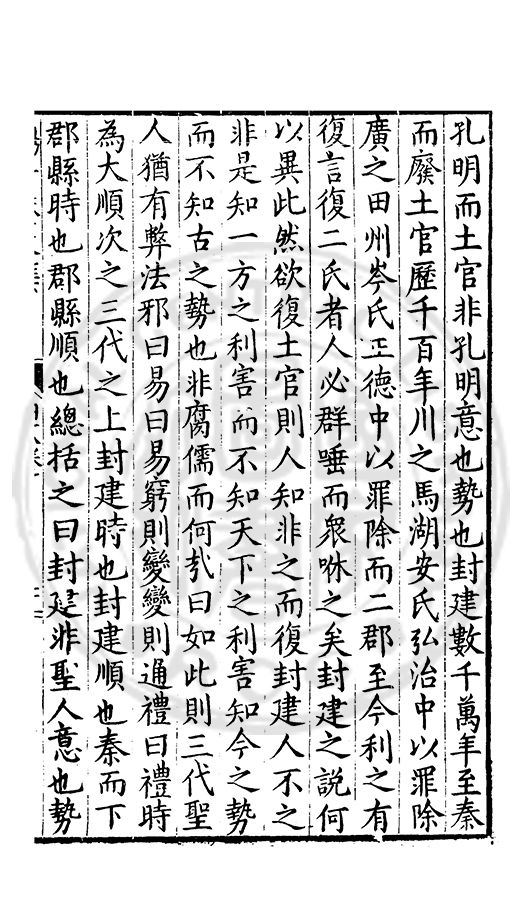 孔明而土官非孔明意也勢也封建數千萬年至秦
而廢土官歷千百年川之馬湖安氏弘治中以罪除
廣之田州岑氏正德中以罪除而二郡至今利之有
復言復二氏者人必群唾而眾咻之矣封建之說何
以異此然欲復土官則人知非之而復封建人不之
非是知一方之利害而不知天下之利害知今之勢
而不知古之勢也非腐儒而何㢤曰如此則三代聖
人猶有弊法邪曰易曰易窮則變變則通禮曰禮時
為大順次之三代之上封建時也封建順也秦而下
郡縣時也郡縣順也總括之曰封建非聖人意也勢